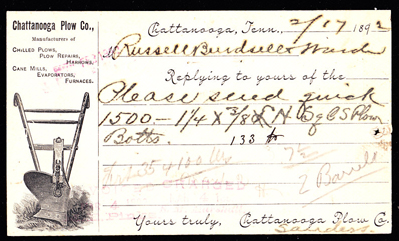 Chattanooga Plow Co.,
Manufacturers of
CHILLED PLOWS,
PLOW REPAIRS,
HARROWS,
CANE MILLS,
EVAPORATORS,
FURNACES.
Chattanooga, Tenn., 2/17 1892
M Russell Burdsall & Ward
Replying to yours of the
Please send quick
1500 - 1 1/4 X 3/8 N Sq CS Plow
Botts. 133 lb
7 1/2
2 Barrels
Yours truly, Chattanooga Plow Co.